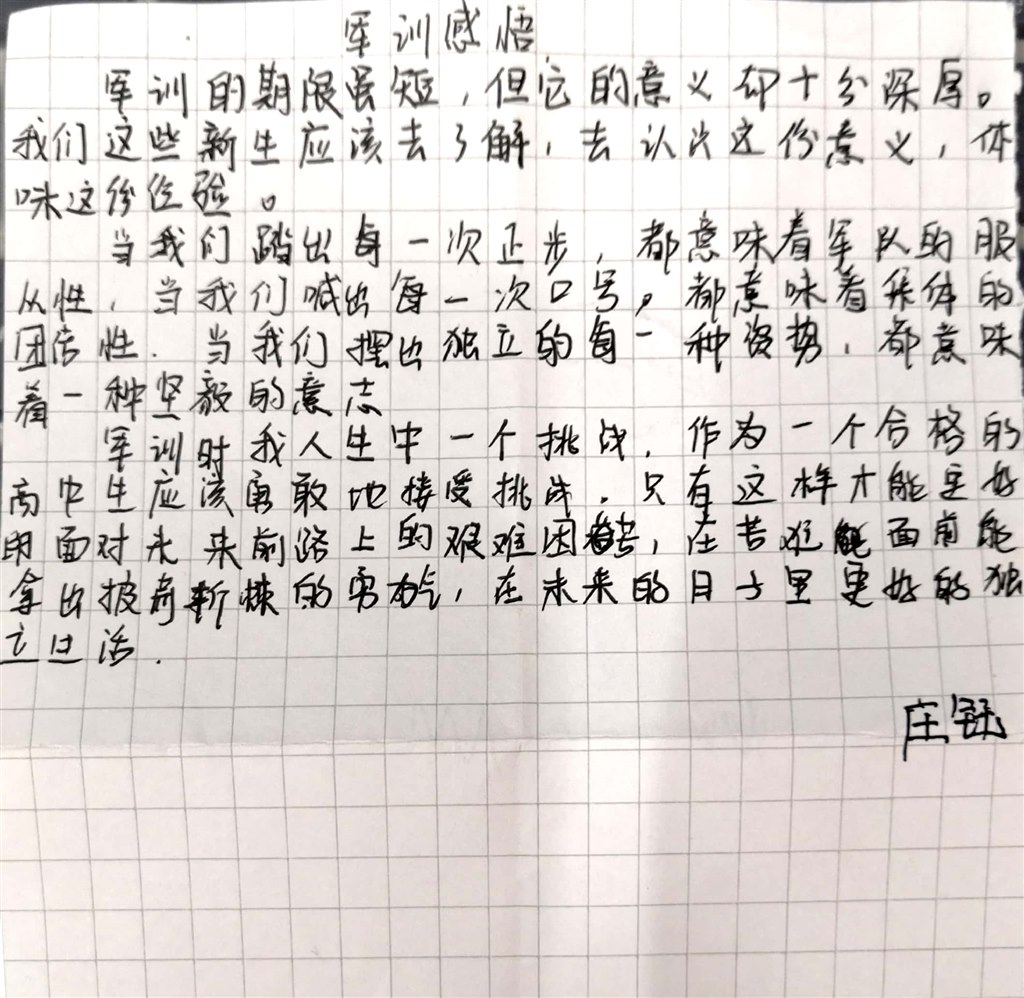 军训感悟
军训的期限虽短，但它的意义却十分深厚。
我们这些新生应该去了解，去认识这份意义，体
味这份经验。
当我们踏出每一次正步，都意味着军队的服
从性，当我们喊出每一次口号，都意味着集体的
团结性．当我们摆出独立的每一种姿势，都意味
着一种坚毅的意志
军训时我人生中一个挑战，作为一个合格的
高中生应该勇敢地接受挑战．只有这样才能更好
的面对未来前路上的艰难困苦，在苦难面前能
拿出披荆斩棘的勇气，在未来的日子里更好的独
立过活．
庄